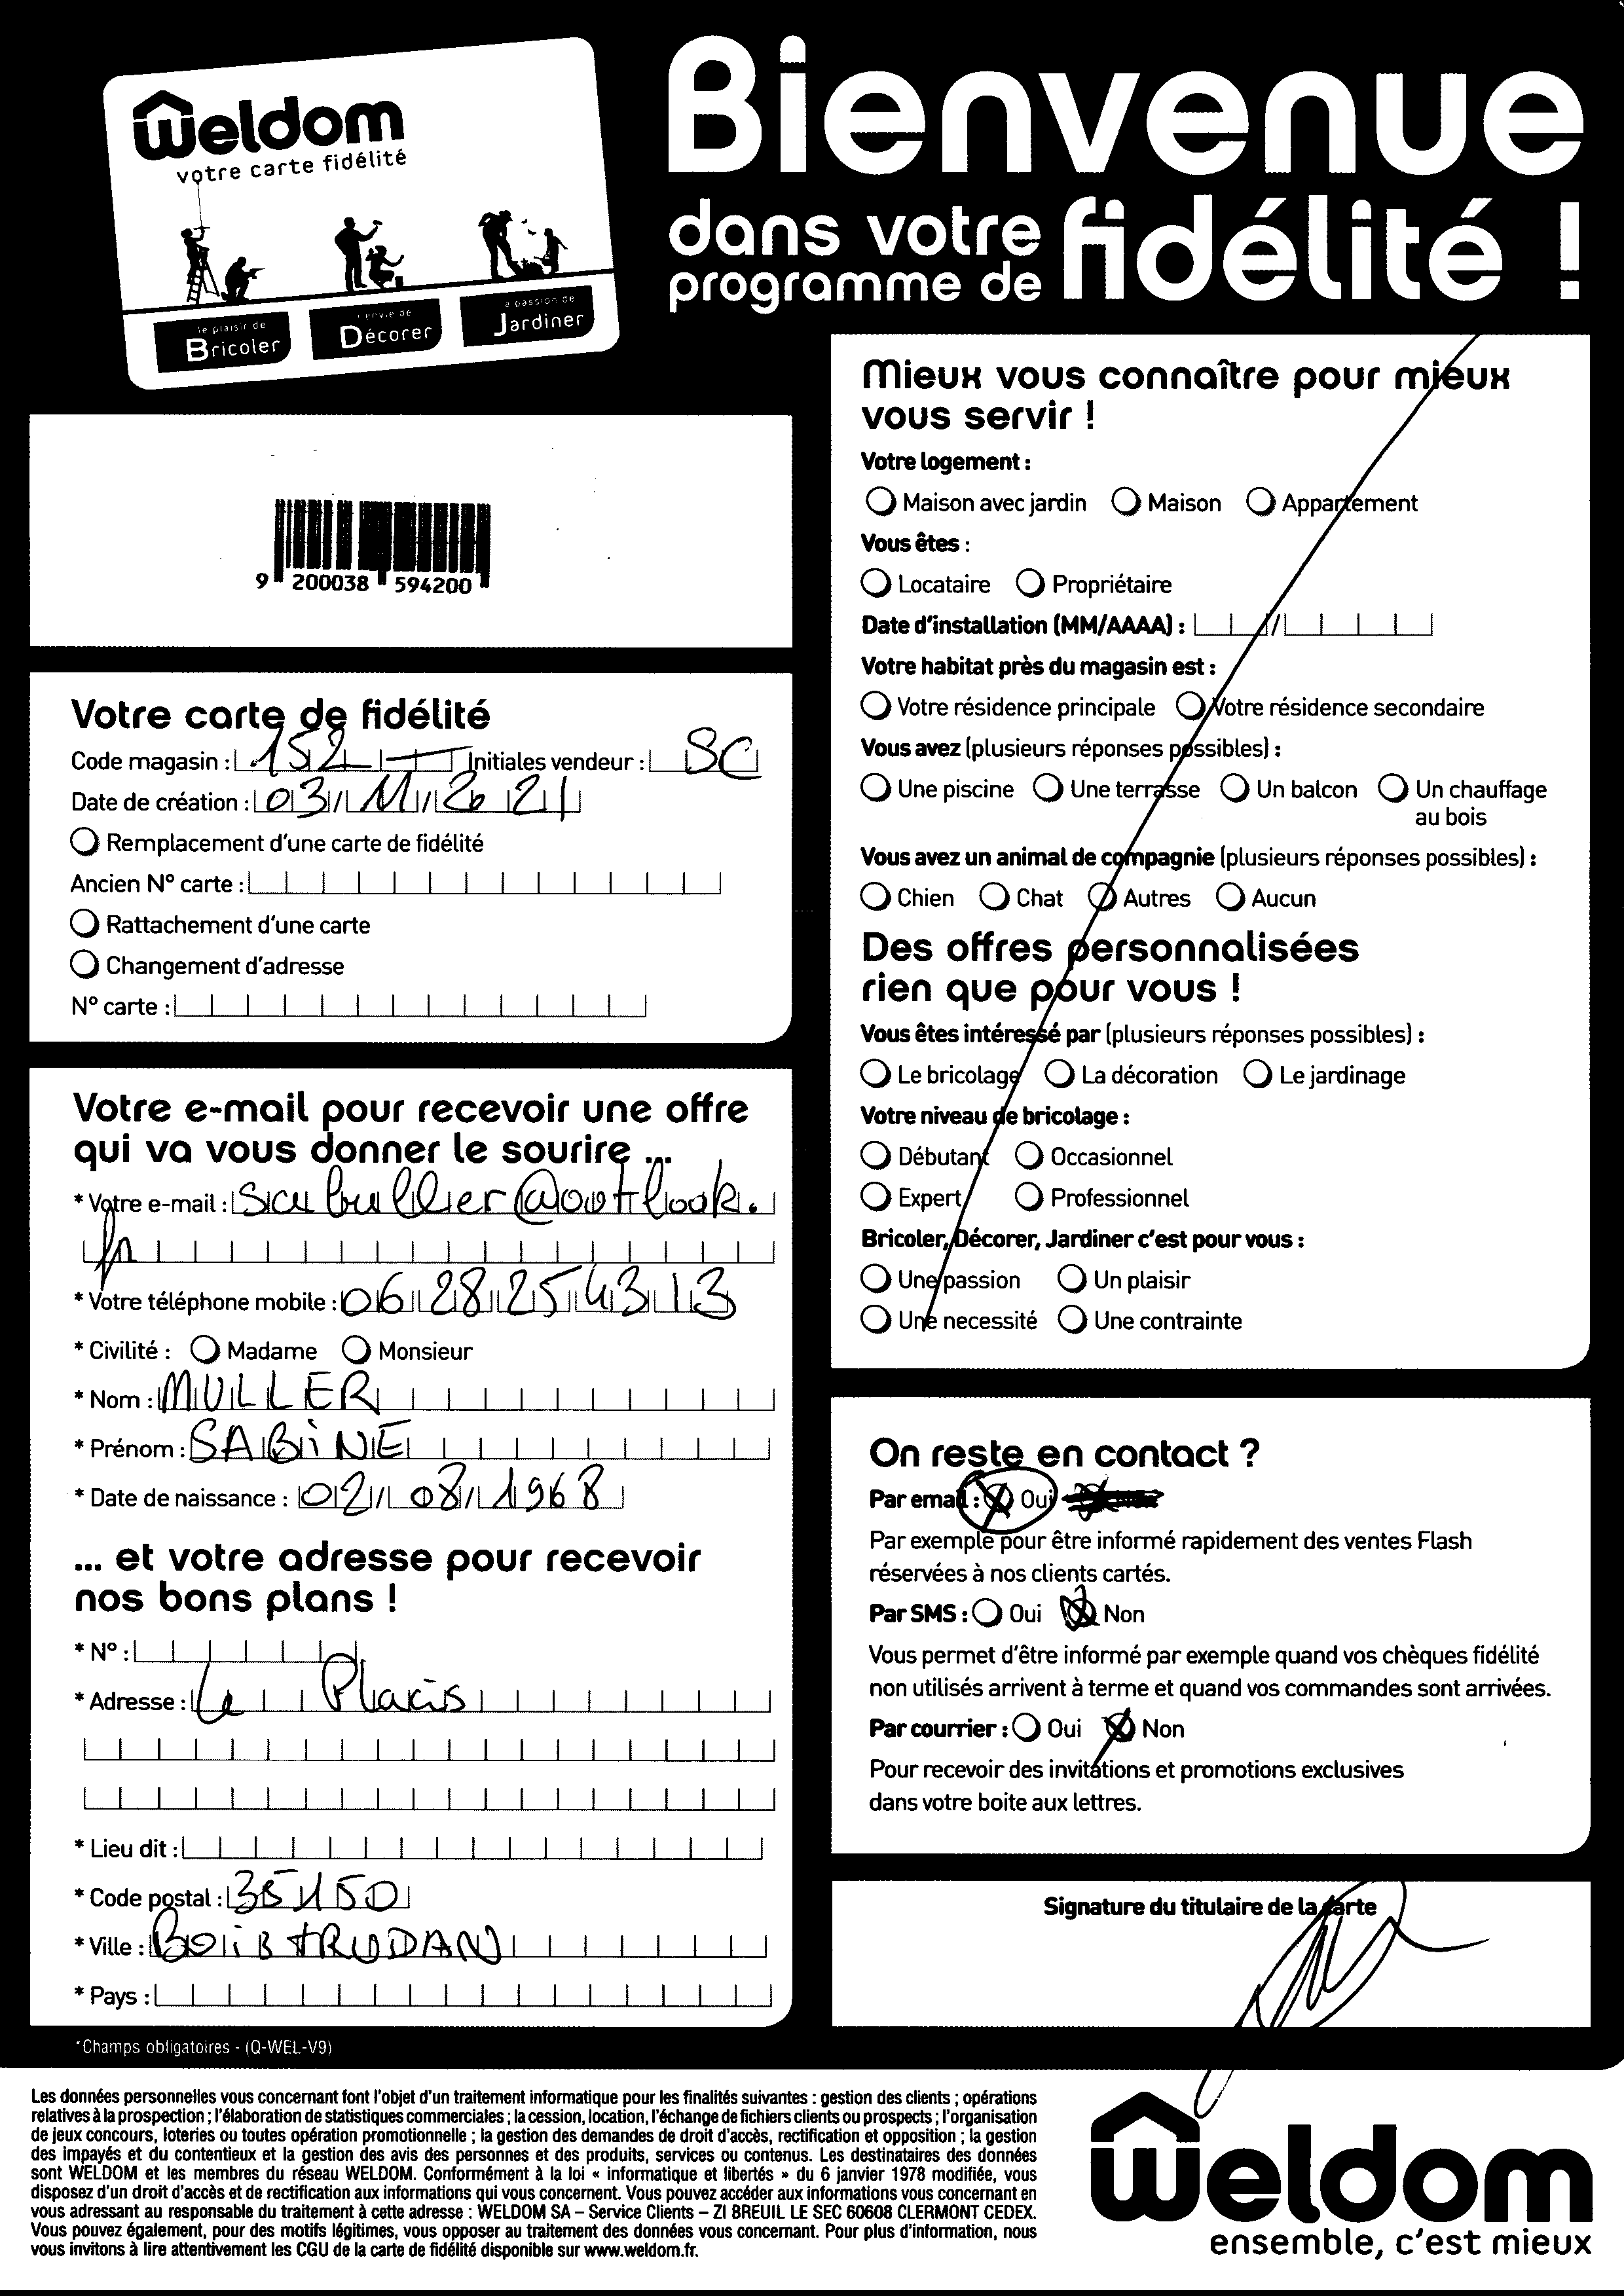 Weldom
votre carte fidélité
le plaisir de
Bricoler
l'envie de
Décorer
la passion de
Jardiner
Bienvenue
dans votre
programme de fidélité !
9 200038 594200
Votre carte de fidélité
Code magasin : 152 Initiales vendeur : SC
Date de création : 03/11/2021
Remplacement d'une carte de fidélité
Ancien N° carte :
Rattachement d'une carte
Changement d'adresse
N° carte :
Votre e-mail pour recevoir une offre
qui va vous donner le sourire ...
* Votre e-mail : @outlook.
fr
* Votre téléphone mobile : 06 28 25 43 13
* Civilité : Madame Monsieur
* Nom : MULLER
* Prénom : SABiNE
* Date de naissance : 02/08/1968
... et votre adresse pour recevoir
nos bons plans !
* N° :
* Adresse : Le Placis
* Lieu dit :
* Code postal : 35150
* Ville :
* Pays :
*Champs obligatoires - (Q-WEL-V9)
Mieux vous connaître pour mieux
vous servir !
Votre logement :
Maison avec jardin Maison Appartement
Vous êtes :
Locataire Propriétaire
Date d'installation (MM/AAAA) : /
Votre habitat près du magasin est :
Votre résidence principale Votre résidence secondaire
Vous avez (plusieurs réponses possibles) :
Une piscine Une terrasse Un balcon Un chauffage
au bois
Vous avez un animal de compagnie (plusieurs réponses possibles) :
Chien Chat Autres Aucun
Des offres personnalisées
rien que pour vous !
Vous êtes intéressé par (plusieurs réponses possibles) :
Le bricolage La décoration Le jardinage
Votre niveau de bricolage :
Débutant Occasionnel
Expert Professionnel
Bricoler, Décorer, Jardiner c'est pour vous :
Une passion Un plaisir
Une necessité Une contrainte
On reste en contact ?
Par email : Oui
Par exemple pour être informé rapidement des ventes Flash
réservées à nos clients cartés.
Par SMS : Oui Non
Vous permet d'être informé par exemple quand vos chèques fidélité
non utilisés arrivent à terme et quand vos commandes sont arrivées.
Par courrier : Oui Non
Pour recevoir des invitations et promotions exclusives
dans votre boite aux lettres.
Signature du titulaire de la carte
Les données personnelles vous concernant font l'objet d'un traitement informatique pour les finalités suivantes : gestion des clients ; opérations
relatives à la prospection ; l'élaboration de statistiques commerciales ; la cession, location, l'échange de fichiers clients ou prospects ; l'organisation
de jeux concours, loteries ou toutes opération promotionnelle ; la gestion des demandes de droit d'accès, rectification et opposition ; la gestion
des impayés et du contentieux et la gestion des avis des personnes et des produits, services ou contenus. Les destinataires des données
sont WELDOM et les membres du réseau WELDOM. Conformément à la loi « informatique et libertés » du 6 janvier 1978 modifiée, vous
disposez d'un droit d'accès et de rectification aux informations qui vous concernent. Vous pouvez accéder aux informations vous concernant en
vous adressant au responsable du traitement à cette adresse : WELDOM SA – Service Clients – ZI BREUIL LE SEC 60608 CLERMONT CEDEX.
Vous pouvez également, pour des motifs légitimes, vous opposer au traitement des données vous concernant. Pour plus d'information, nous
vous invitons à lire attentivement les CGU de la carte de fidélité disponible sur www.weldom.fr.
Weldom
ensemble, c'est mieux